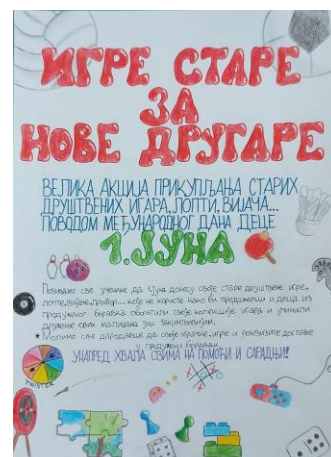 ИГРЕ СТАРЕ
ЗА
НОВЕ ДРУГАРЕ
ВЕЛИКА АКЦИЈА ПРИКУПЉАЊА СТАРИХ
ДРУШТВЕНИХ ИГАРА, ЛОПТИ, ВИЈАЧА...
ПОВОДОМ МЕЂУНАРОДНОГ ДАНА ДЕЦЕ
1. ЈУНА
Позивамо све ученике да 1. јуна донесу своје старе друштвене игре,
лопте, вијаче, прибор... које не користе како би предшколци и деца из
продуженог боравка обогатили своје колекције игара и учинили
дружење свих малишана још занимљивијим.
Молимо све дародавце да своје играчке, игре и реквизите доставе
у продужени боравак.
УНАПРЕД ХВАЛА СВИМА НА ПОМОЋИ И САРАДЊИ!
TWISTER